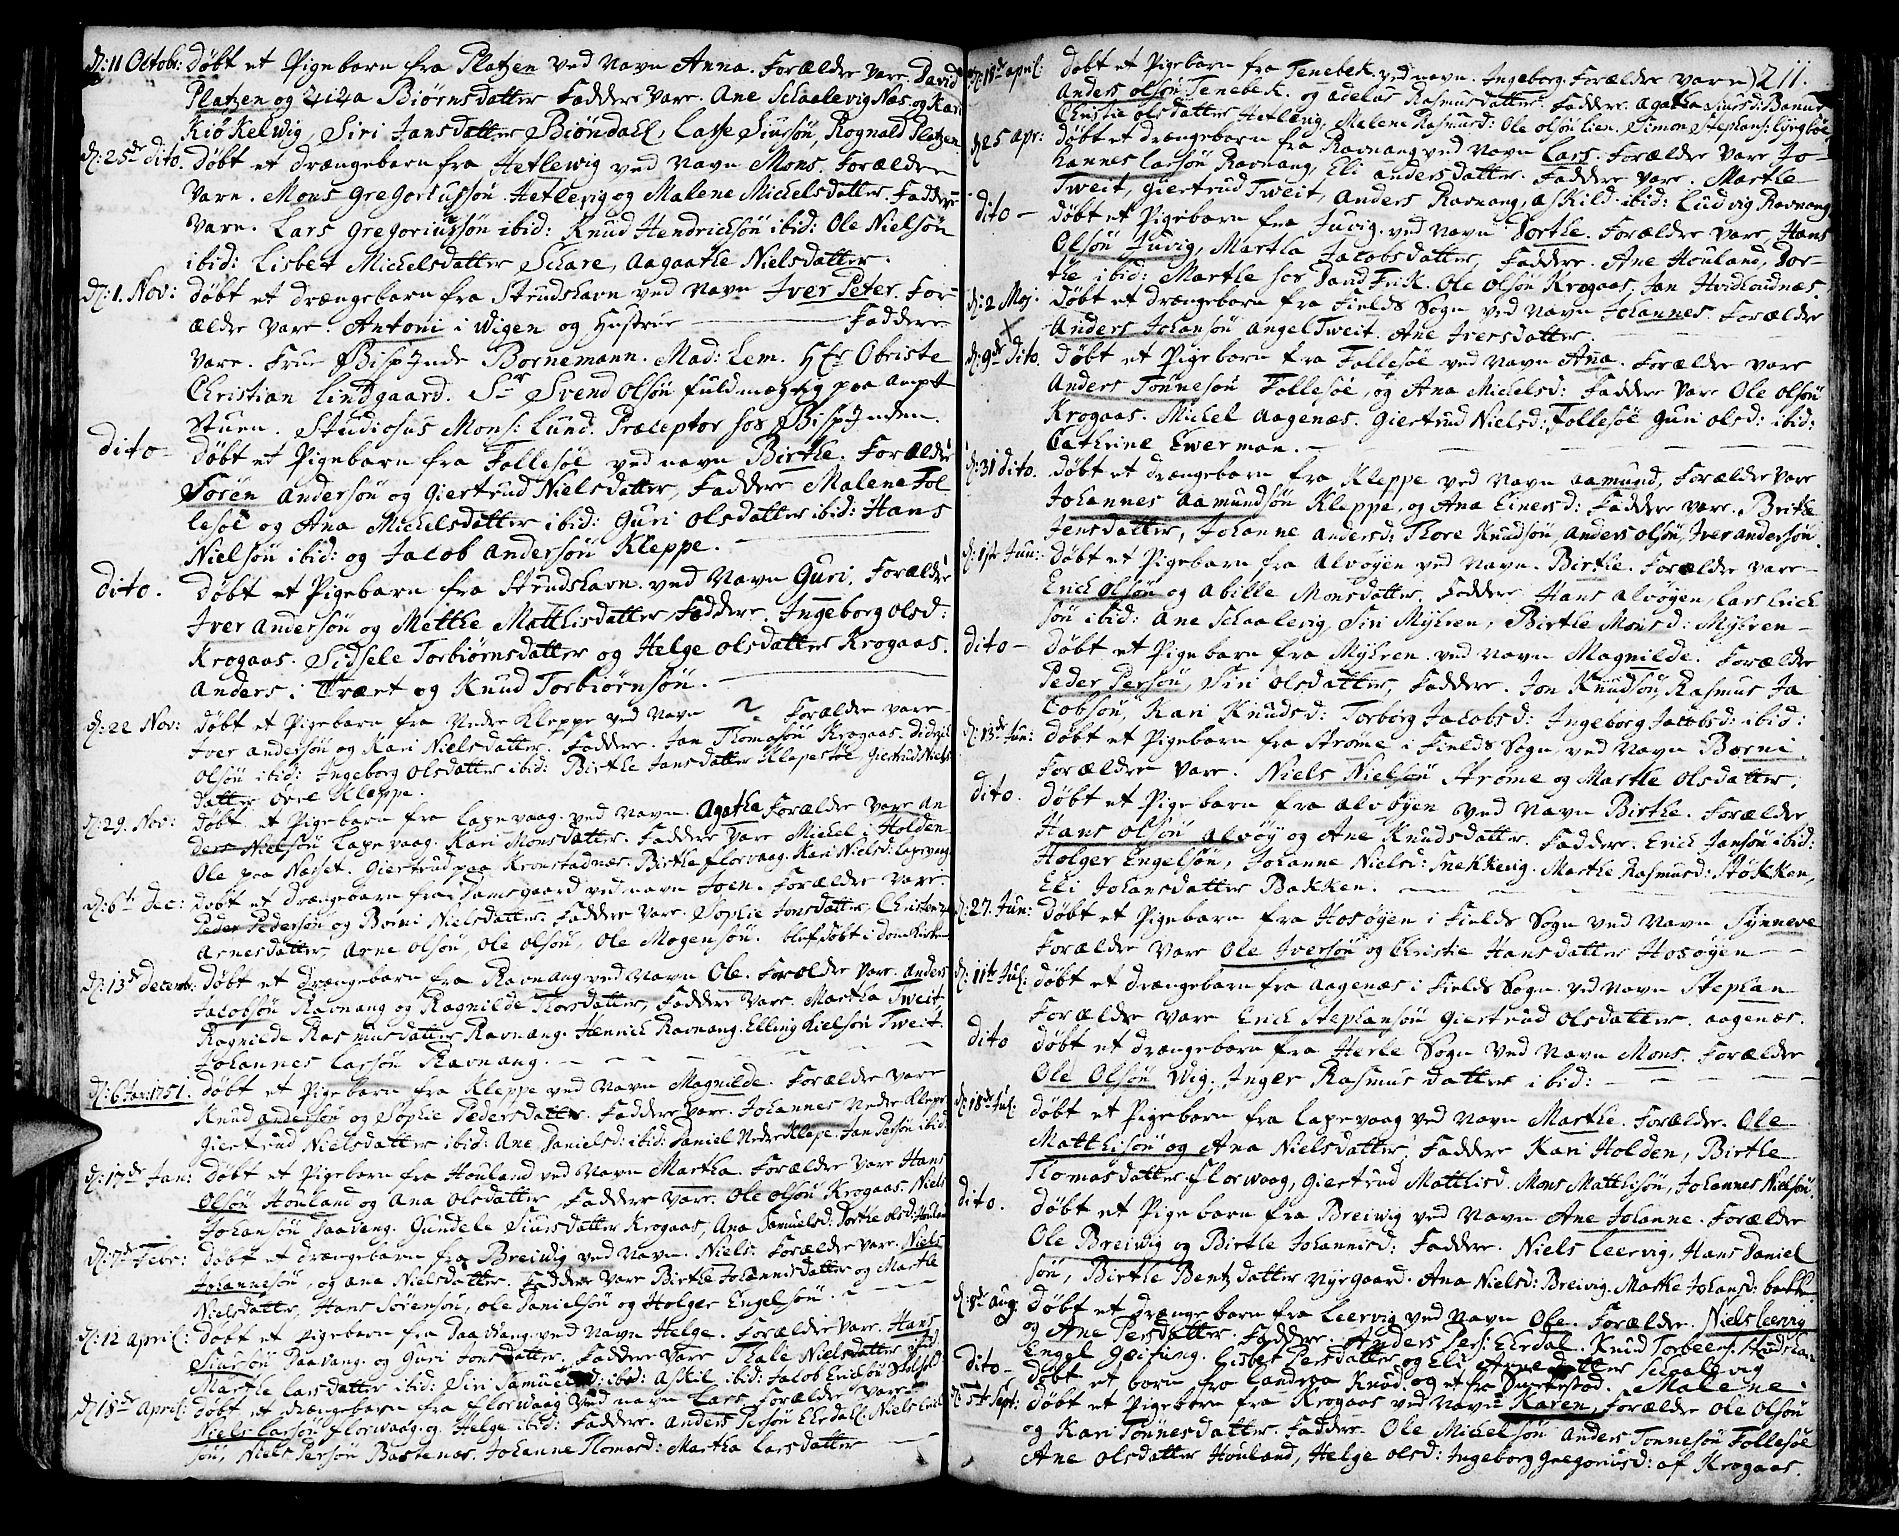 d: 11 Octobr: døbt et Pigebarn fra Platzen ved Navn Anna. Forældre vare. David
Platzen og Zizia Biørnsdatter Faddere vare. Ane Schaalevig Næs, og Kari
Kiøkelwig, Siri Jansdatter Biøndall, Lasse Siursøn, Rognald Platzen
d: 25de dito. døbt et drængebarn fra Hetlewig ved Navn Mons. Forældre
vare. Mons Gregoriussøn Hetlevig og Malene Michelsdatter. Faddere
vare. Lars Gregoriussøn ibid: Knud Hendrichsøn ibid: Ole Nielsøn
ibid: Lisbet Michelsdatter Schare, Aagaathe Nielsdatter.
d: 1. Nov: døbt et drængebarn fra Strudshavn ved Navn Iver Peter. For-
ældre vare. Antoni i Wigen og Hustrue Faddere
vare. Frue Bispinde Bornemann. Mad: Lem. Hr Obriste
Christian Lindgaard. Sr Svend Olsøn fuldmægtig paa Ampt
Stuen. Studiosus Mons: Lund. Præceptor hos Bispinden.
dito- døbt et Pigebarn fra Follesøe ved navn Birthe. Forældre
Søren Andersøn og Giertrud Nielsdatter, Faddere Malene Fol
lesøe og Ana Michelsdatter ibid: Guri Olsdatter ibid: Hans
Nielsøn ibid: og Jacob Andersøn Kleppe.
dito. døbt et Pigebarn fra Strudshavn ved Navn Guri, Forældre
Iver Andersøn og Mette Matthisdatter, Faddere. Ingeborg Olsd:
Krogaas. Sidsele Torbiørnsdatter og Helge Olsdatter Krogaas.
Anders i Træet og Knud Torbiørnsøn.
d: 22 Nov: døbt et Pigebarn fra Nedre Kleppe ved Navn ? Forældre vare-
Iver Andersøn og Kari Nielsdatter. Faddere. Jan Thomasøn Krogaas. Didrik
Olsøn ibid: Ingeborg Olsdatter ibid: Birthe Jansdatter Klepestøe Giertrud Niels
datter øvre Kleppe.
d: 29. Nov: døbt et Pigebarn fra Lapevaag ved Navn. Agathe Forældre vare An
ders Nielsøn Lapevaag. Kari Monsdatter. Faddere vare Michel i Holden
Ole paa Næset. Giertrud paa Kronstadnæs. Birthe Florvaag. Kari Niels: Lapevaag
d: 6te Dec: døbt et drængebarn fra Damsgaard ved navn Joen. Forældre vare.
Peder Pedersøn og Børni Nielsdatter. Faddere vare. Sophie Jonsdatter, Christenze
Arnesdatter, Arne Olsøn, Ole Olsøn, Ole Mogensøn. blef døbt i Domkirken
d: 13de decemb: døbt et drængebarn fra Ravnang ved Navn Ole. Forældre vare. Anders
Jacobsøn Ravnang og Ragnilde Thorsdatter, Faddere vare. Martha Tweit
Ragnilde Rasmusdatter Ravnang. Henrich Ravnang. Elling Nielsøn Tweit.
Johannes Larsøn Ravnang.
d: 6 Jan: 1751. døbt et Pigebarn fra Kleppe ved Navn Magnilde. Forældre vare
Knud Andersøn og Sophie Pedersdatter. Faddere vare. Johannes Nedre Kleppe
Giertrud Nielsdatter ibid: Ane Danielsd: ibid: Daniel Nedre Klepe. Jan Persøn ibid:
d: 17de Jan: døbt et Pigebarn fra Houland ved Navn Martha. Forældre vare Hans
Olsøn Houland og Ana Olsdatter. Faddere vare. Ole Olsøn Krogaas. Niels
Johansøn Daavang. Gundele Siursdatter Krogaas, Ana Samuelsd: Dorthe Olsd: Houland
d: 7de Febr: døbt et drængebarn fra Breiwig ved Navn. Niels. Forældre vare. Niels
Johannesøn, og Ane Nielsdatter. Faddere vare Birthe Johannisdatter og Marthe
Nielsdatter, Hans Sørensøn, Ole Danielsøn og Holger Engelsøn.
d: 12 April: døbt et Pigebarn fra Daavang ved Navn Helge. Forældre vare. Hans
Siursøn Daavang. og Guri Jonsdatter. Faddere vare Thale Nielsdatter
Marthe Larsdatter ibid: Siri Samuelsd: ibid: Askil ibid: Jacob Erichsøn
d: 18de April: døbt et drængebarn fra Florwaag ved navn Lars. Forældre vare-
Niels Larsøn Florwaag og Helge ibid: Faddere. Anders Persøn Elvedall. Niels
søn, Niels Persøn Bastenæs. Johanne Thomasd: Martha Larsdatter
211.
d: 18de April: døbt et Pigebarn fra Tenebek. ved navn. Ingeborg. Forældre vare
Anders Olsøn Tenebek. og Adelus Rasmusdatter. Faddere. Agatha Siursd:
Christie Olsdatter Hetlæng, Malene Rasmusd: Ole Olsøn Lien. Simon Stephans: Lyngbøe
d: 25 Apr: døbt et drængebarn fra Ravnang ved Navn Lars. Forældre vare Jo-
hannes Larsøn Ravnang, Eli Andersdatter. Faddere vare. Marthe
Tweit, Giertrud Tweit, Anders Ravnang, Askild ibid: Ludvig Ravnang
dito- døbt et Pigebarn fra Juvig. ved Navn Dorthe. Forældre vare Hans
Olsøn Juvig, Martha Jacobsdatter, Faddere. Ane Houland, Dor-
the ibid: Marthe hos David Fisk. Ole Olsøn Krogaas. Jan Hvidhoudnæs.
d: 2 Maj. døbt et drængebarn fra Fields Sogn ved Navn Johannes. Forældre
Anders Johansøn Angel Tweit. Ane Iversdatter
d: 9de dito døbt et Pigebarn fra Follesøe ved Navn Ana. Forældre vare
Anders Tønnesøn Follesøe, og Ana Michelsd: Faddere vare Ole Olsøn
Krogaas. Michel Aagenæs. Giertrud Nielsd: Follesøe Guri Olsd: ibid:
Cathrine Ewerman.
d: 31 dito. døbt et drængebarn fra Kleppe ved Navn Aamund, Forældre vare
Johannes Aamundsøn Kleppe, og Ana Einersd: Faddere vare. Birthe
Jensdatter, Johanne Andersd: Thore Knudsøn, Anders Olsøn, Iver Andersøn.
d: 1ste Jun: døbt et Pigebarn fra Alvøyen ved Navn. Birthe. Forældre vare-
Erich Olsøn og Abille Monsdatter. Faddere Hans Alvøyen, Lars Erich
søn ibid: Ane Schaalevig, Siri Myhren, Birthe Monsd: Myhren-
dito- døbt et Pigebarn fra Myhren ved Navn Magnilde. Forældre
Peder Persøn, Siri Olsdatter, Faddere. Jon Knudsøn, Rasmus Ja
cobsøn, Kari Knudsd: Torborg Jacobsd: Ingeborg Jacobsd: ibid:
d: 13de Jun: døbt et Pigebarn fra Strøme i Fields Sogn ved Navn Børni.
Forældre vare. Niels Nielsøn Strøme og Marthe Olsdatter.
dito. døbt et Pigebarn fra Alvøyen ved Navn Birthe. Forældre
Hans Olsøn Alvøy og Ane Knudsdatter. Faddere. Erich Jansøn ibid:
Holger Engelsøn, Johanne Nielsd: Snekkevig. Marthe Rasmusd: Støkken,
Eli Johansdatter Bakken.
d: 27. Jun: døbt et Pigebarn fra Hosøyen i Fields Sogn ved Navn Synneve
Forældre vare Ole Iversøn og Christie Hansdatter Hosøyen
d: 11te Jul: døbt et drængebarn fra Aagenæs i Fields Sogn ved Navn Stephan
Forældre vare Erich Stephansøn Giertrud Olsdatter. Aagenæs.
dito døbt et drængebarn fra Herle Sogn ved Navn Mons. Forældre
Ole Olsøn Wig. Inger Rasmusdatter ibid:
d: 18de Jul: døbt et Pigebarn fra Lapevaag ved Navn Marthe. Forældre. Ole
Matthisøn og Ana Nielsdatter. Faddere Kari Holden, Birthe
Thomasdatter Florwaag, Giertrud Matthisd. Mons Matthisøn, Johannes Nielsøn
dito. døbt et Pigebarn fra Breiwig ved Navn Ane Johanne. Forældre
Ole Breiwig og Birthe Johannisd: Faddere. Niels Leervig, Hans Daniel
søn, Birthe Bentzdatter Nyegaard. Ana Nielsd: Breivig. Marthe Johansd:
d: 8de Aug. døbt et drængebarn fra Leervig ved Navn Ole. Forældre. Niels Leervig
og Ane Persdatter. Faddere. Anders Pers: Elvedal. Knud Torbeers: Strudshavn
Engel Geifing. Lisbet Persdatter og Eli Arnedatter Schaalevig
dito- døbt et barn fra Landraa Knud. og et fra Smørstad. Malene.
d: 5te Sept: døbt et Pigebarn fra Krogaas ved Navn Karen, Forældre Ole Olsøn
og Kari Tønnesdatter. Faddere. Ole Michelsøn Anders Tønnesøn Follesøe
Ane Olsdatter Houland, Helge Olsd: Ingeborg Gregoriusd: af Krogaas.